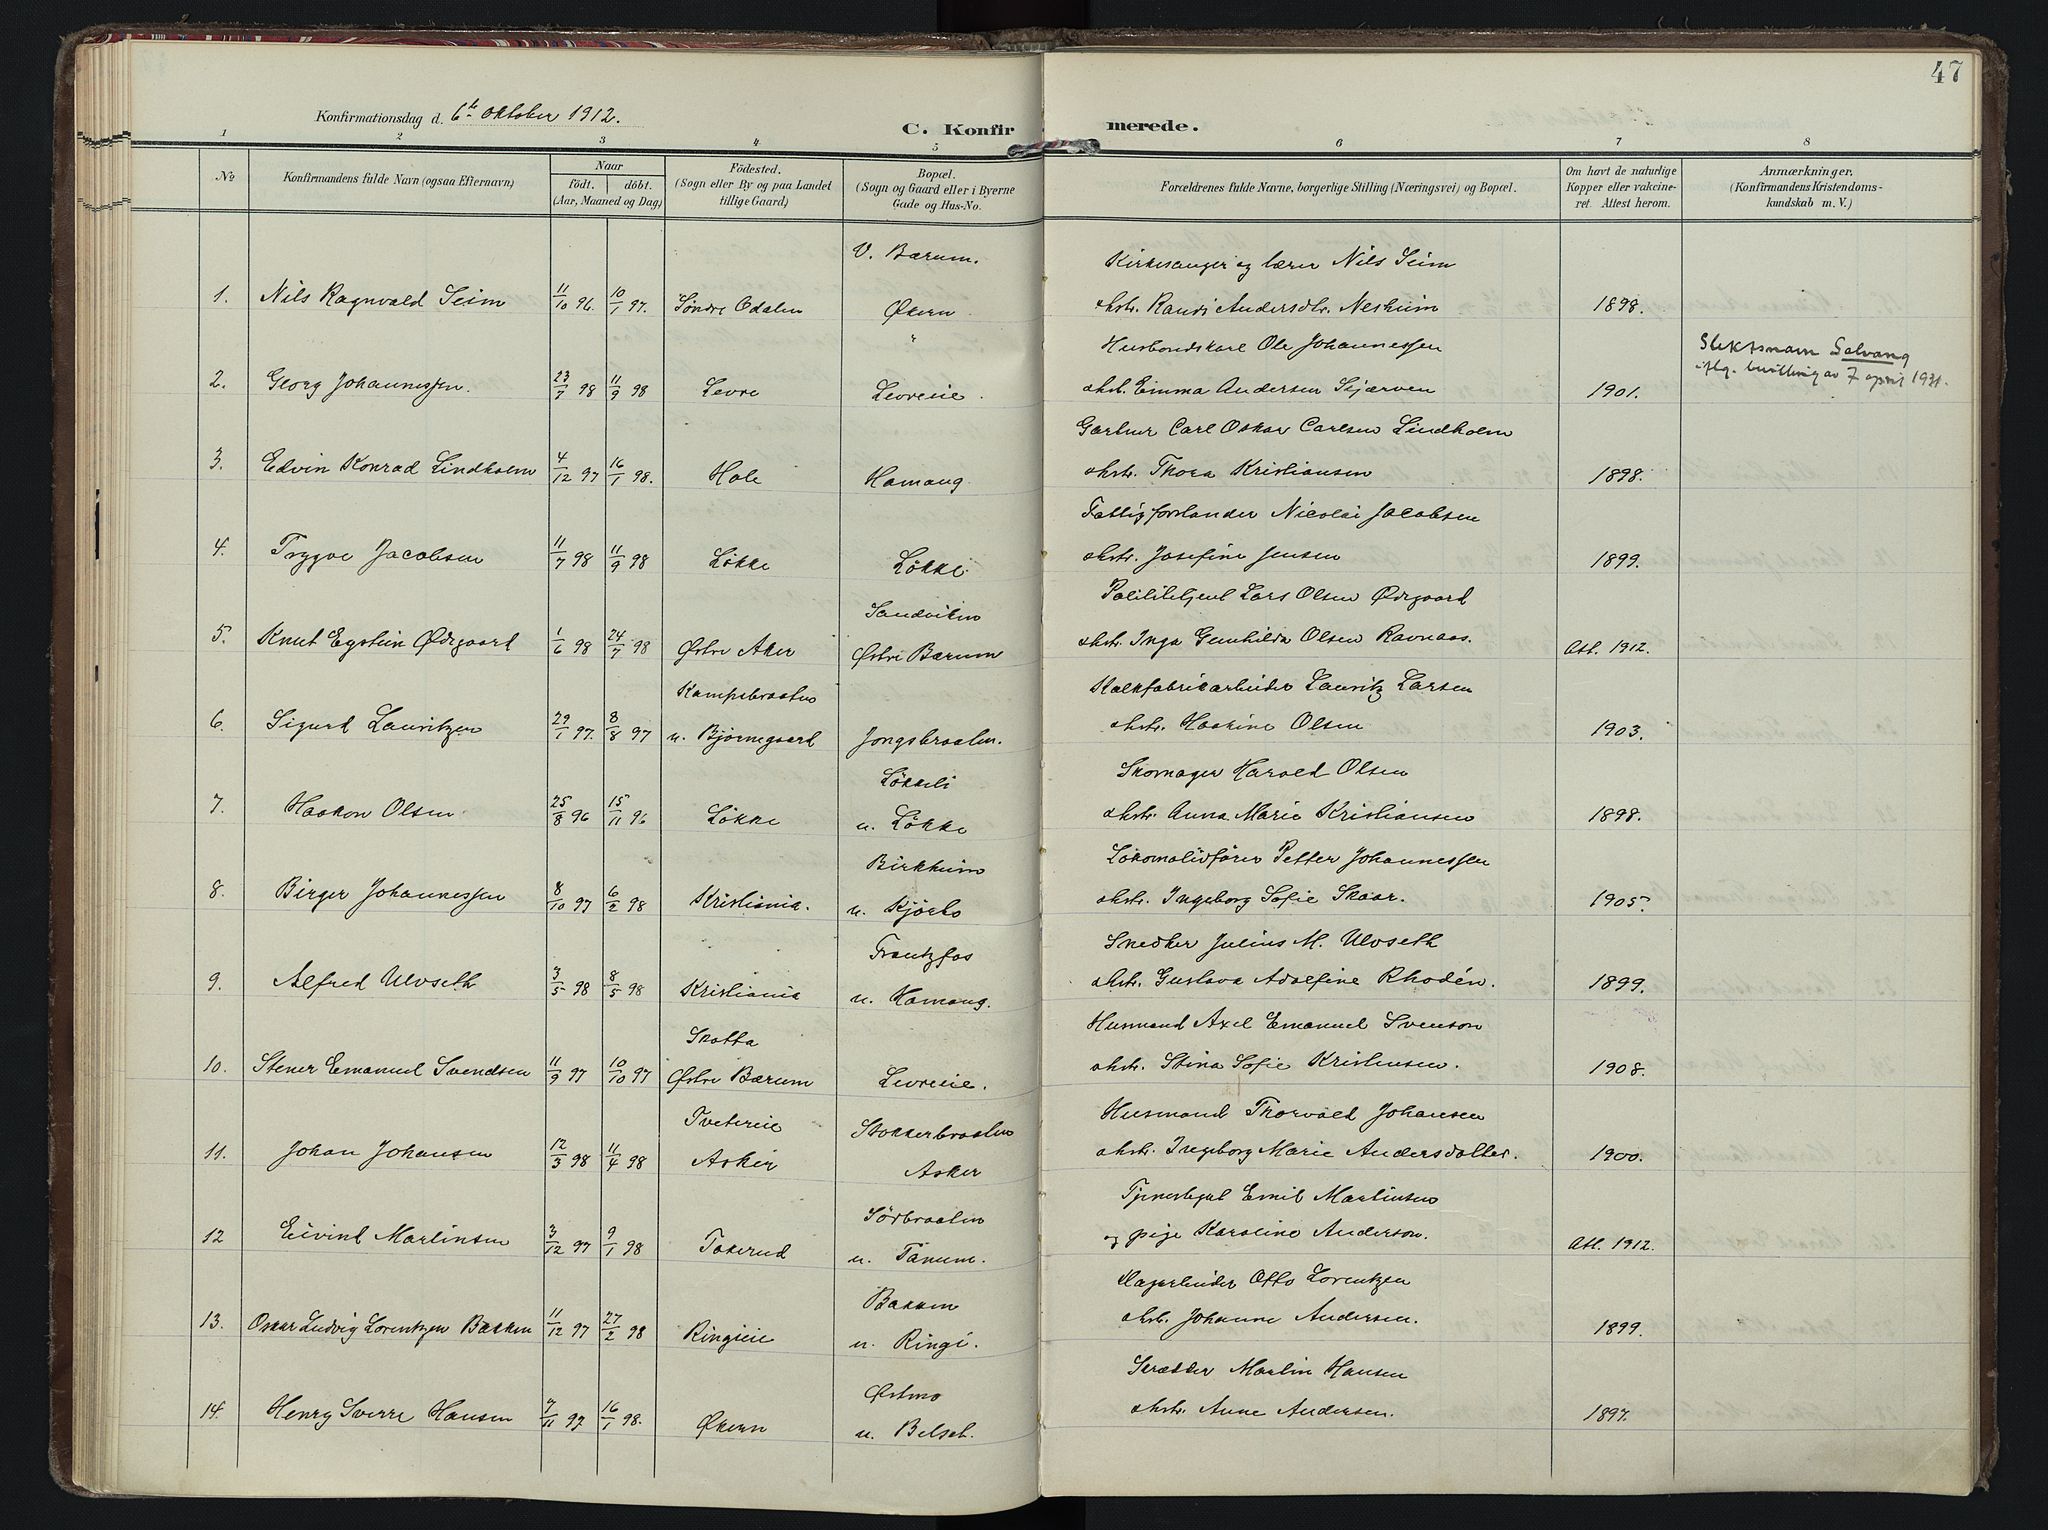 47
Konfirmationsdag d. 6te Oktober 1912.
C. Konfirmerede.
1 2 3 4 5 6 7 8
No
Konfirmandens fulde Navn (ogsaa Efternavn)
Naar
födt. döbt.
(Aar, Maaned og Dag)
Födested.
(Sogn eller By og paa Landet
tillige Gaard)
Bopæl.
(Sogn og Gaard eller i Byerne
Gade og Hus-No.
Forældrenes fulde Navne, borgerlige Stilling (Næringsvei) og Bopæl.
Om havt de naturlige
Kopper eller vakcine-
ret. Attest herom.
Anmærkninger.
(Konfirmandens Kristendoms-
kundskab m. V.)
V. Bærum. Kirkesanger og lærer Nils Seim
1. Nils Ragnvald Seim 11/10 96. 10/1 97. Søndre Odalen Økern ohstr. Randi Andersdtr. Nesheim 1898.
" Husbondskarl Ole Johannessen Slektsnavn Solvang
2. Georg Johannessen. 23/7 98 11/9 98 Levre Levreeie. ohstr. Emma Andersen Skjærven 1901. iflg. bevilling av 7 april 1931.
Gartner Carl Oskar Carlsen Lindholm
3. Edvin Konrad Lindholm 4/12 97 16/1 98. Hole Hamang ohstr. Thora Kristiansen 1898.
Fattigforstander Nicolai Jacobsen
4. Trygve Jacobsen 11/7 98 11/9 98 Løkke Løkke. ohstr. Josefine Jensen 1899.
Sandviken Politibetjent Lars Olsen Ødegaard
5. Knut Eystein Ødegaard 1/6 98 24/7 98 Østre Aker Østre Bærum ohstr. Inga Gunhilda Olsen Ravnaas. Att. 1912.
Kampebraaten Kalkfabrikarbeider Lauritz Larsen
6. Sigurd Lauritzen 29/1 97. 8/8 97 u. Bjørnegaard Jongsbraaten. ohstr. Haakine Olsen 1903.
Løkkeli Skomager Harald Olsen
7. Haakon Olsen. 25/8 96 15/11 96 Løkke u. Løkke ohstr. Anna Marie Kristiansen 1898.
Birkheim Lokomotivfører Petter Johannessen
8. Birger Johannessen 8/10 97 6/2 98 Kristiania. u. Kjørbo ohstr. Ingeborg Sofie Skaar. 1905.
Frantzfos Snedker Julius M. Ulvseth
9. Alfred Ulvseth 3/5 98 8/5 98 Kristiania u. Hamang. ohstr. Gustava Adolfine Rhodén. 1899.
Skotta Husmand Axel Emanuel Svenson
10. Stener Emanuel Svendsen 11/9 97 10/10 97 Østre Bærum Levreeie. ohstr. Stina Sofie Kristensen. 1908.
Tvetereie Stokkerbraaten Husmand Thorvald Johansen
11. Johan Johansen 12/3 98 11/4 98 Asker Asker ohstr. Ingeborg Marie Andersdatter. 1900.
Sørbraaten Tjenestegut Emil Martinsen
12 Eivind Martinsen 3/12 97 9/1 98 Tokerud u. Tanum. og pige Karoline Anderson. Att. 1912.
Bakken Høgarbeider Otto Lorentzen
13. Oskar Ludvig Lorentzen Bakken 11/12 97 27/2 98 Ringieie u. Ringi. ohstr. Johanne Andersen. 1899.
Østmo Skrædder Martin Hansen
14. Henry Sverre Hansen 7/11 97 16/1 98. Økern u. Belset. ohstr. Anne Andersen. 1897.